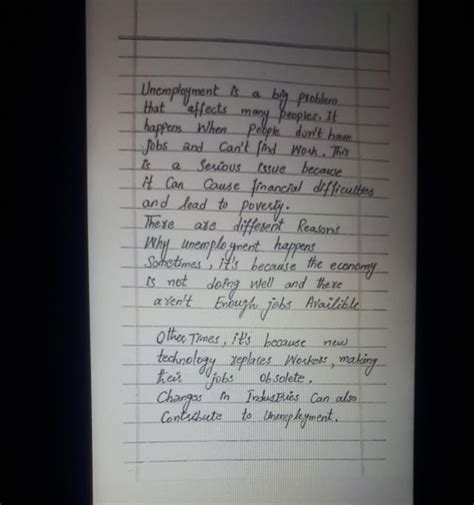 Unemployment is a big problem
that affects many peoples. It
happens When People don't have
Jobs and Can't find Work. This
is a Serious issue because
it Can Cause financial difficulties
and lead to poverty.
There are different Reasons
Why unemployment happens
Sometimes, it's because the economy
Is not doing well and there
aren't Enough jobs Availible
Other Times, it's because new
technology replaces Workers, making
their jobs obsolete.
Changes in Industries Can also
Contribute to Unemployment.